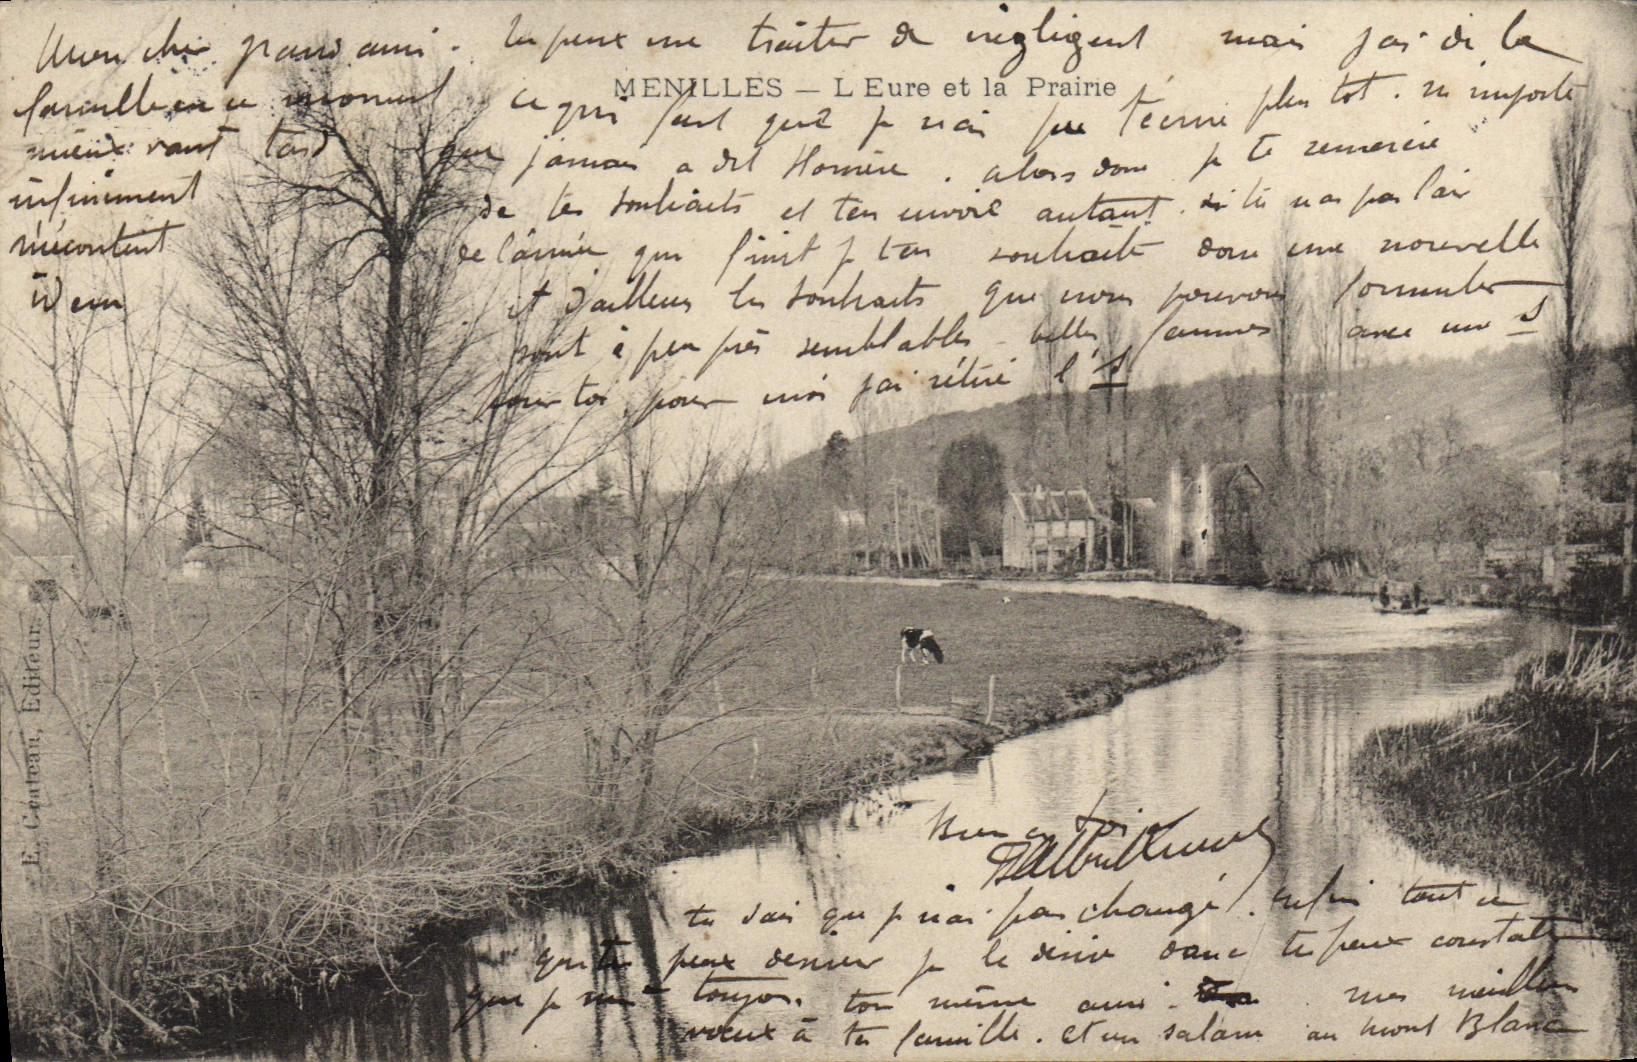 Mon cher grand ami. tu peux me traiter de négligent mais j'ai de la
MENILLES — L'Eure et la Prairie
famille en ce moment ce qui fait que je n'ai pu t'écrire plus tot. n'importe
mieux vaut tard que jamais a dit Homère. alors donc je te remercie
infiniment de tes souhaits et t'en envoie autant. si tu n'as pas l'air
mécontent de l'année qui finit je t'en souhaite donc une nouvelle
idem et d'ailleurs les souhaits que nous pouvons formuler
sont à peu près semblables - belles femmes avec un S
pour toi, pour moi j'ai retiré l'S
E. Crateau, Editeur.
Bien a toi
tu sais que je n'ai pas changé. Enfin tout ce
que tu peux désirer je le désire donc tu peux constater
que je toujours ton même ami. mes meilleurs
voeux à ta famille. et un salam au Mont Blanc